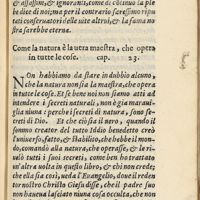 & assassini, & ignoranti, come di costoro la ple
be dice di noi; ma per il contrario saressimo ripu
tati conseruatori delle uite altrui, & la fama no
stra sarebbe eterna.
Come la natura è la uera maestra, che opera
in tutte le cose. cap. 23.
NOn habbiamo da stare in dubbio alcuno,
che la natura non sia la maestra, che opera
in tutte le cose. Et se bene noi non siamo atti ad
intendere i secreti naturali, non è gia maraui-
glia niuna: perche i secreti di natura, sono secre
ti di Dio. Et che ciò sia il uero, quando il
sommo creator del tutto Iddio benedetto creò
l'uniuerso, fatto, & stabilito, che hebbe il mon-
do, comandò alla natura, che operasse, & le ri
uelò tutti i suoi secreti, come ben trattaremo
un'altra uolta in questo libro, & chi non crede,
che ella sia così, ueda l'Euangelio, doue il reden
tor nostro Christo Giesu disse, che il padre suo
non haueua lasciato niuna cosa occulta, che non